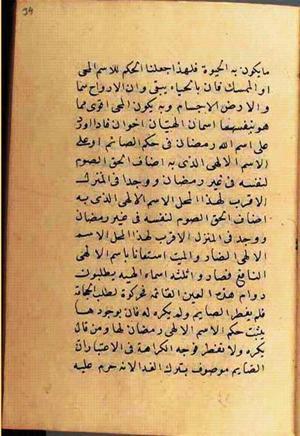 ٩٤
ما يكون به الحيوة فلهذا جعلنا الحكم للاسم المحى
او الممسك فان بالحياء يبقى وان الارواح سما
والارض الاجسام وبه يكون المحى اقوى مما
هو بنفسهما اسمان الهيان اخوان فاذا ورد
على اسم الله رمضان فى حكم الصائم او على
الاسم الالهى الذى به اضاف الحق الصوم
لنفسه فى غير رمضان ووجدا فى المنزل
الاقرب لهذا المحل الاسم الالهى الذى به
اضاف الحق الصوم لنفسه فى غير رمضان
ووجد فى المنزل الاقرب لهذا المحل الاسم
الالهى الضار والمميت استعانا باسم الالهى
النافع فصاروا ثلثة اسماء الهية يطلبون
دوام هذه العين القائمة فحركوه لطلب الحجامة
فلم يفطر الصايم ولم يكره له فان بوجودها
يثبت حكم الاسم الالهى رمضان لها ومن قال
يكره ولا يفطر فوجه الكراهة فى الاعتبار ان
الصايم موصوف بترك الغذا لانه حرم عليه